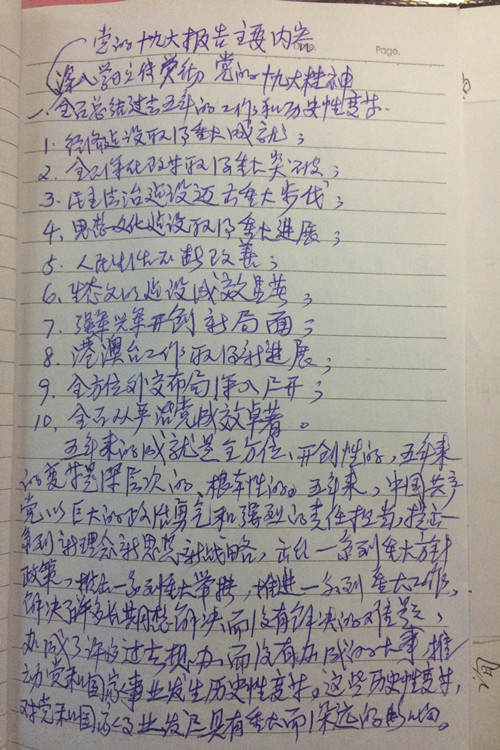 党的十九大报告主要内容
Page.
深入学习文件贯彻党的十九大精神
一、全面总结过去五年的工作和历史性变革.
1. 经济建设取得重大成就；
2. 全面深化改革取得重大突破；
3. 民主法治建设迈出重大步伐；
4、思想文化建设取得重大进展；
5. 人民生活不断改善；
6、生态文明建设成效显著；
7. 强军兴军开创新局面；
8. 港澳台工作取得新进展；
9. 全方位外交布局深入展开；
10. 全面从严治党成效卓著。
五年来的成就是全方位、开创性的，五年来
的变革是深层次的、根本性的。五年来，中国共产
党以巨大的政治勇气和强烈的责任担当，提出一
系列新理念新思想新战略，出台一系列重大方针
政策，推出一系列重大举措，推进一系列重大工作，
解决了许多长期想解决而没有解决的难题，
办成了许多过去想办而没有办成的大事，推
动党和国家事业发生历史性变革。这些历史性变革，
对党和国家事业发展具有重大而深远的影响。